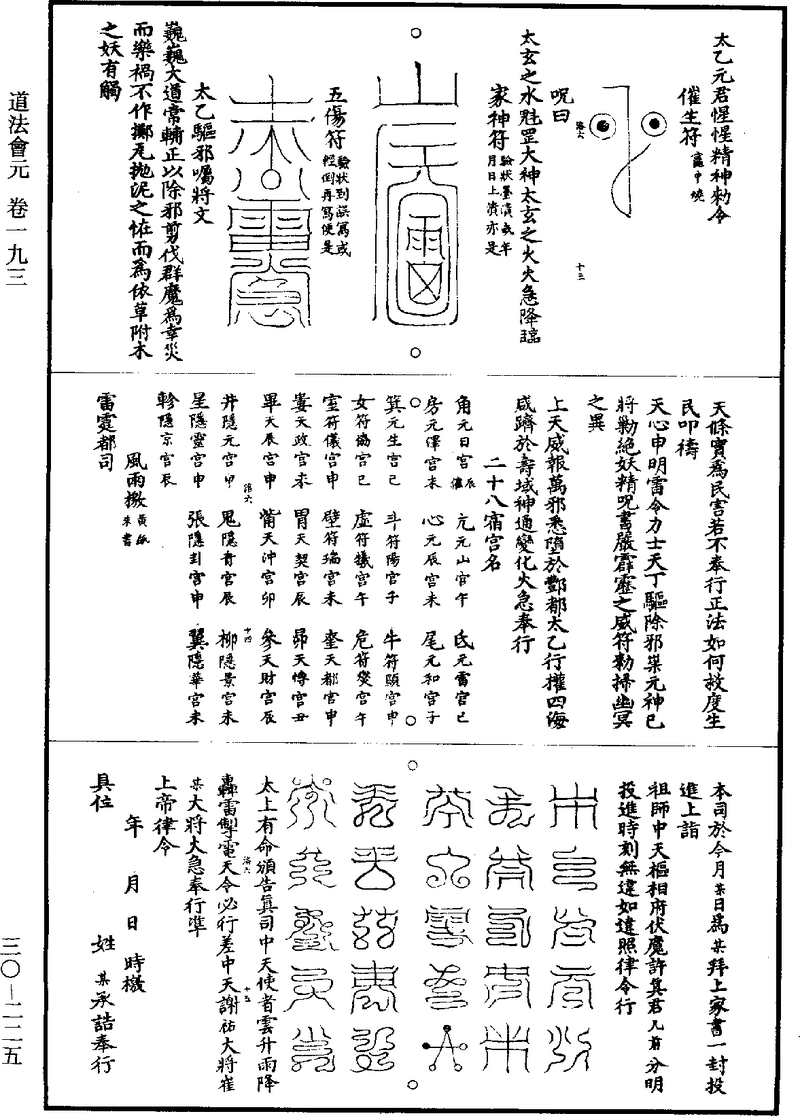 道法會元 卷一九三
三〇—二二五
太乙元君惺惺精神勑令
催生符 竈中燒
呪曰
太玄之水魁罡大神太玄之火火急降臨
家神符 驗狀墨漬或年月日上漬亦是
五傷符 驗狀到誤寫或怪倒再寫便是
太乙驅邪囑將文
巍巍大道常輔正以除邪剪伐群魔為幸災
而樂禍不作擲瓦拋泥之怪而為依草附木
之妖有觸
天條實為民害若不奉行正法如何救度生
民叩禱
天心申明雷令力士天丁驅除邪祟元神已
將勦絕妖精呪書嚴霹靂之威符勑掃幽冥
之異
上天威報萬邪悉墮於酆都太乙行權四海
咸躋於壽域神通變化火急奉行
二十八宿宮名
角元日宮辰 亢元山宮午 氐元雷宮巳
房元澤宮未 心元辰宮未 尾元和宮子
箕元生宮巳 斗符陽宮子 牛符頤宮申
女符偽宮巳 虛符犧宮午 危符變宮午
室符儀宮申 壁符瑞宮未 奎天都宮申
婁天政宮未 胃天契宮辰 昴天慱宮丑
畢天辰宮申 觜天沖宮卯 參天財宮辰
井隱元宮申 鬼隱青宮辰 柳隱景宮未
星隱靈宮申 張隱卦宮申 翼隱華宮未
軫隱京宮辰
風雨檄 黃紙朱書
雷霆都司
本司於今月某日為某拜上家書一封投
進上詣
祖師中天樞相府伏魔許真君几前分明
投進時刻無違如違照律令行
太上有命頒告真司中天使者雲升雨降
轟雷掣電天令必行差中天謝祐大將崔
某大將火急奉行準
上帝律令
年 月 日 時檄
具位 姓 某承誥奉行